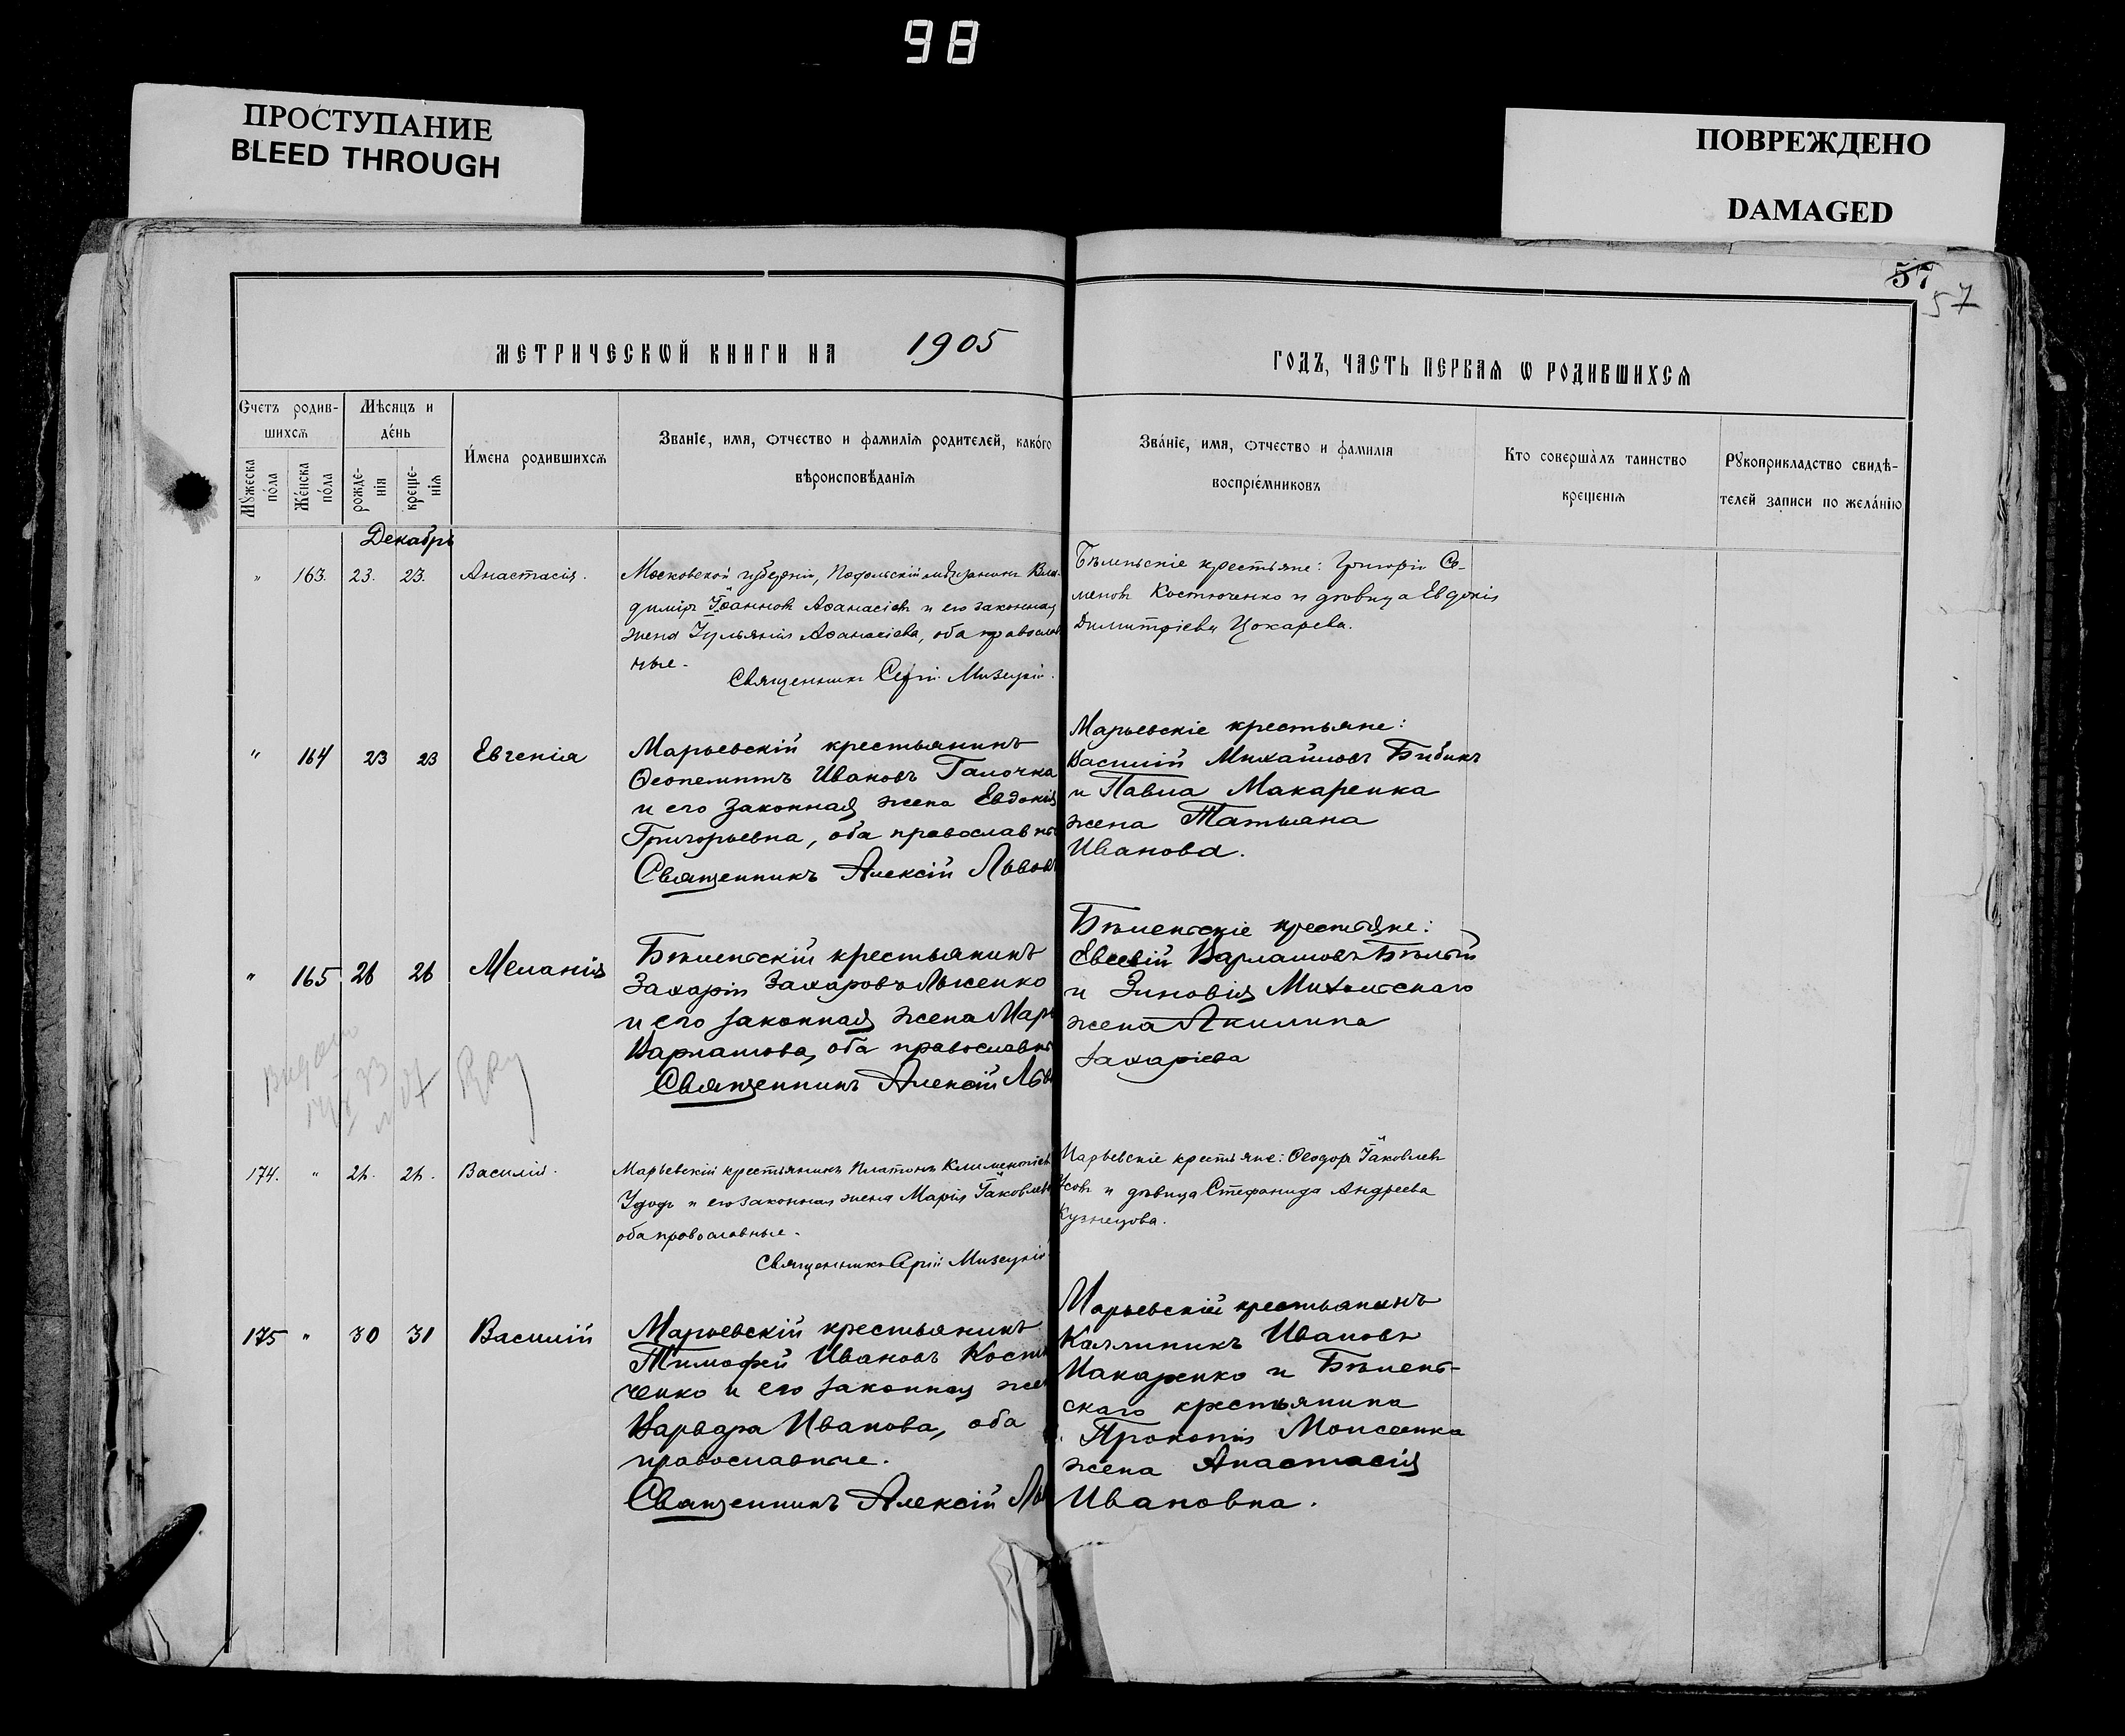 98
ПРОСТУПАНИЕ
BLEED THROUGH
ПОВРЕЖДЕНО
DAMAGED
57
57
МЕТРИЧЕСКѠЙ КНИГИ НА 1905
ГОДЪ, ЧАСТЬ ПЕРВАѦ Ѡ РОДИВШИХСѦ
Счетъ родив-
шихсѧ
Мꙋжеска
пола
Женска
пола
Мѣсяцъ и
день
рожде-
нія
креще-
нія
Имена родившихсѧ
Званіе, имя, отчество и фамилія родителей, какого
вѣроисповѣданія
Званіе, имя, отчество и фамилія
воспріемниковъ
Кто совершалъ таинство
крещенія
Рꙋкоприкладство свидѣ-
телей записи по желанію
Декабрь
" 163. 23. 23. Анастасія.
Московской губерніи, Подольскій мѣщанинъ Вла-
димір Іоаннов Аѳанасіев и его законная
жена Іульянія Аѳанасіева, оба православ
ные.
Священник Сергій Мизецкій.
крестьяне: Григорій Се-
менов Костюченко и дѣвица Евдокія
Димитріева Цокарева.
" 164 23 23 Евгенія
Марьевскій крестьянинъ
Ѳеопемптъ Ивановъ Галочка
и его законная жена Евдокія
Григорьевна, оба православны
Священникъ Алексій Львовъ
Марьевскіе крестьяне:
Василій Михайловъ Бибикъ
и Павла Макаренка
жена Татьяна
Иванова.
" 165 26 26 Меланія
крестьянинъ
Захарій Захаровъ Лысенко
и его законная жена Мар
Варлаамова, оба православн
Священникъ Алексій Льв
крестьяне:
Евсевій Варлаамовъ Бѣлый
и Зиновія
жена Акилина
Захаріева
Видано
174. " 24. 24. Василій.
Марьевскій крестьянинъ Платонъ Климентіев
Удодъ и его законная жена Марія Іаковлев
оба православные.
Священник Сергій Мизецкій
Марьевскіе крестьяне: Ѳеодоръ Іаковлев
Усовъ и дѣвица Стефанида Андреева
Кузнецова.
175 " 30 31 Василій
Марьевскій крестьянинъ
Тимофей Ивановъ Костю
ченко и его законная жен
Варвара Иванова, оба
православные.
Священникъ Алексій Ль
Марьевскій крестьянинъ
Каллиникъ Ивановъ
Макаренко и
скаго крестьянина
Прокопія Моисеенка
жена Анастасія
Ивановна.